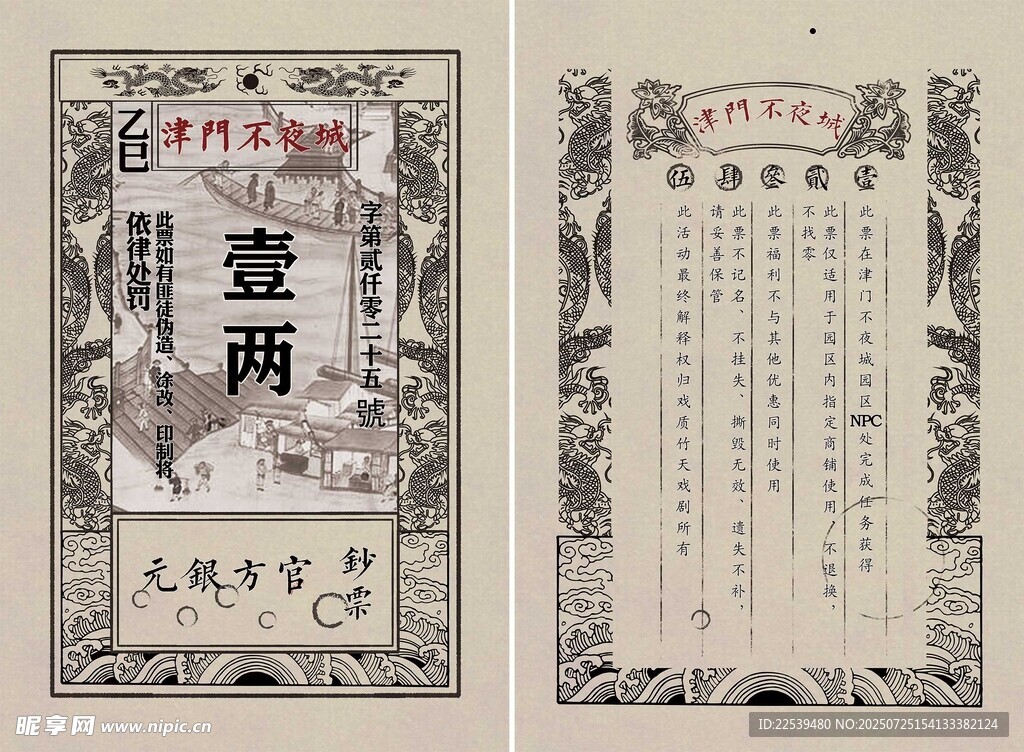 津門不夜城
乙巳
字第贰仟零二十五號
壹两
此票如有匪徒伪造、涂改、印制将
依律处罚
元銀方官
鈔票
津門不夜城
伍 肆 叁 貳 壹
此票在津门不夜城园区NPC处完成任务获得
此票仅适用于园区内指定商铺使用,不退换,
不找零
此票福利不与其他优惠同时使用
此票不记名、不挂失、撕毁无效、遗失不补,
请妥善保管
此活动最终解释权归戏质竹天戏剧所有
昵享网 www.nipic.cn
ID:22539480 NO:20250725154133382124